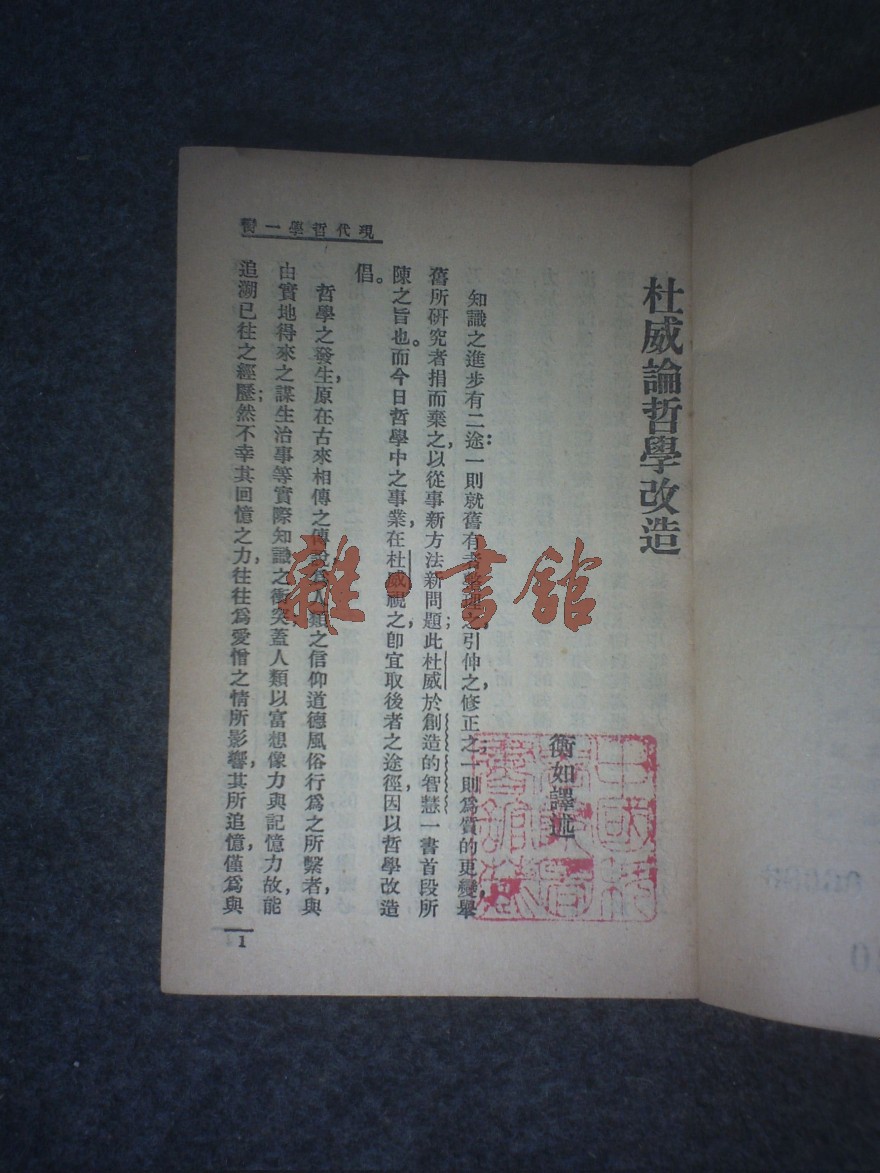 現代哲學一臠
杜威論哲學改造
衡如譯述
知識之進步有二途:一則就舊有者整理之,引伸之,修正之;一則爲質的更變,舉
舊所研究者捐而棄之,以從事新方法新問題;此杜威於創造的智慧一書首段所
陳之旨也。而今日哲學中之事業,在杜威視之,卽宜取後者之途徑,因以哲學改造
倡。
哲學之發生,原在古來相傳之傳說,爲人類之信仰道德風俗行爲之所繫者,與
由實地得來之謀生治事等實際知識之衝突。蓋人類以富想像力與記憶力故,能
追溯已往之經歷;然不幸其回憶之力,往往爲愛憎之情所影響,其所追憶,僅爲與
1
雜·書館